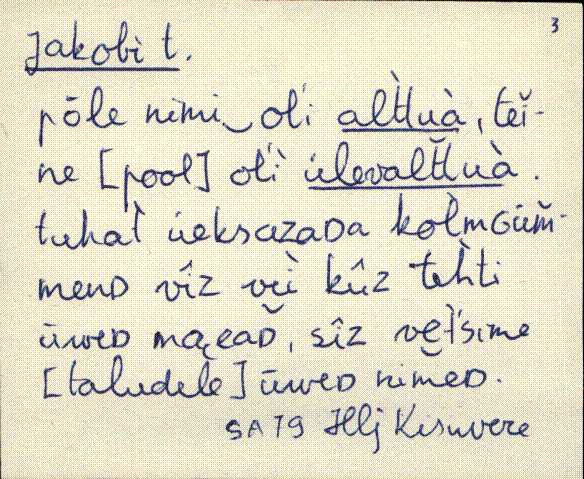 3
Jakobi t.
pōle nimi‿ol'i alt̀tuà, teĭ-
ne [pool] ol'ì ülevalt̆tuà.
tuhat̀ üeksazaᴅa kolmɢüm̆-
menᴅ vîz veì kûz teh̀ti
ūweᴅ mąeaᴅ̆, sîz vęt'sime
[taludele] ūweᴅ nĭmeᴅ.
SA 79 Hlj Kisuvere